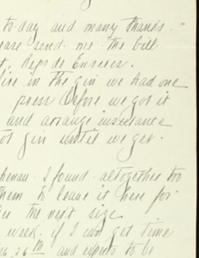 to-day and many thanks.
send me the bill
fire in the gin we had one
press before we got it
and arrange insurance
gin until we get
I found altogether too
them to leave it here for
the next size
week if I can get time
26th and expects to be